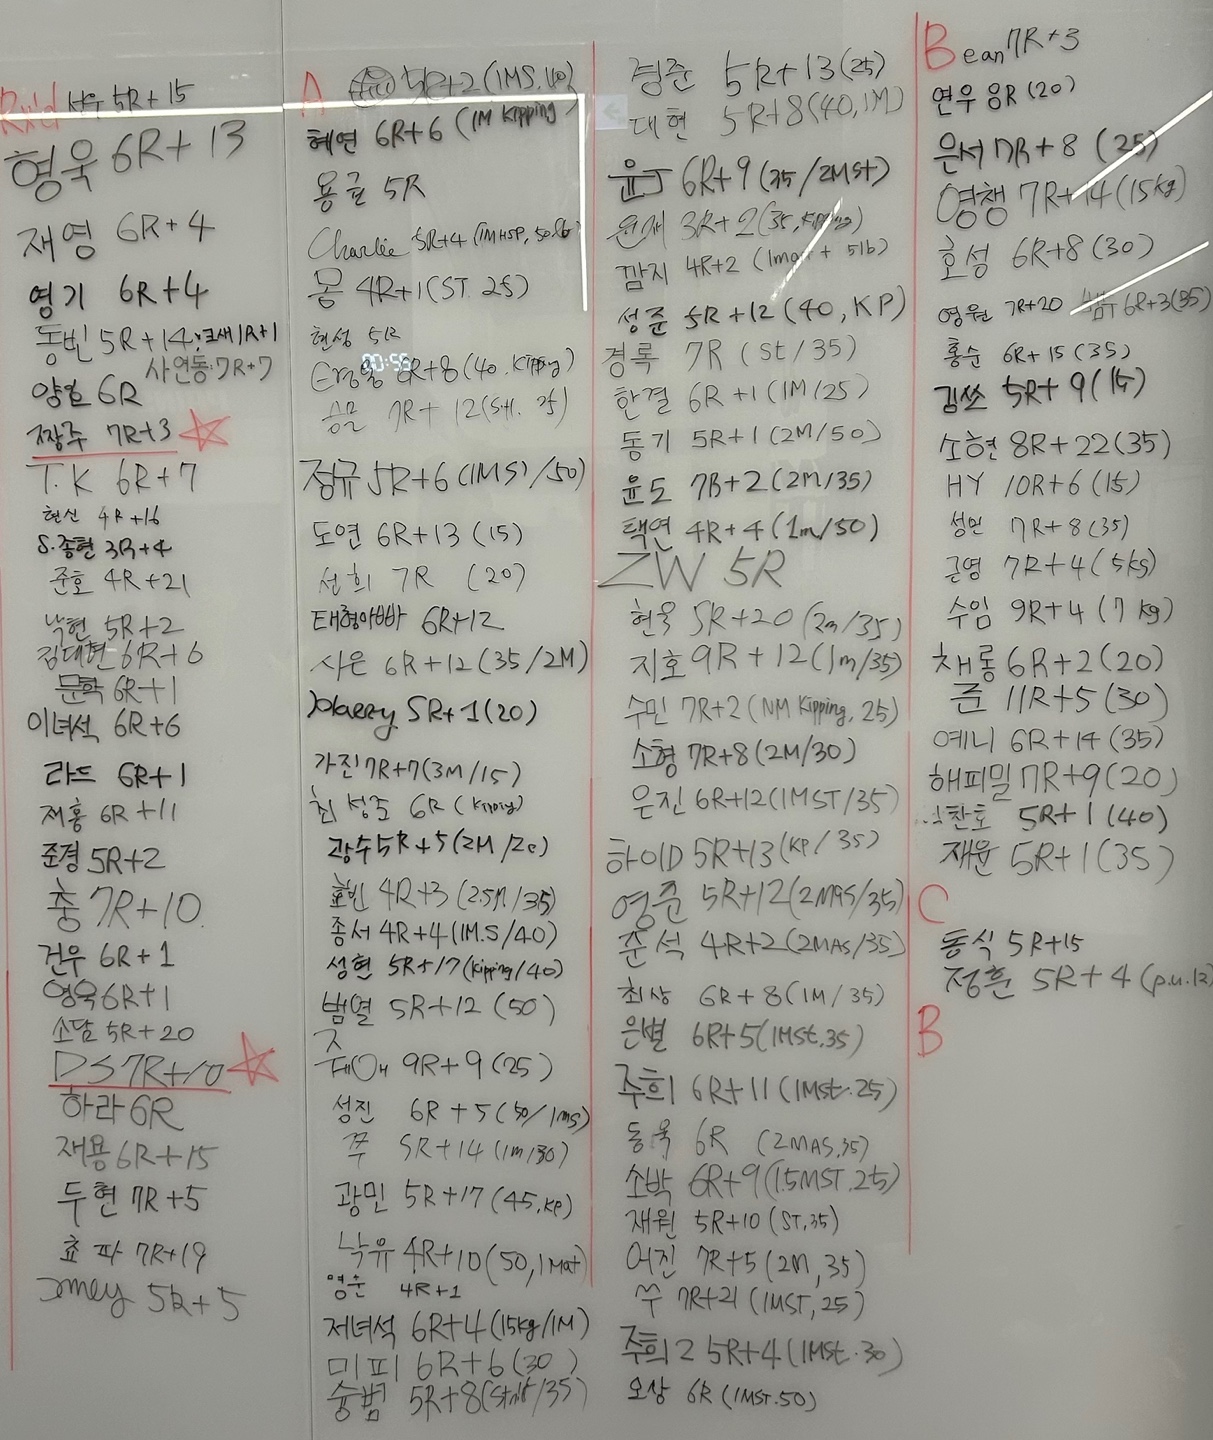 Rx'd
5R+15
형욱 6R+13
재영 6R+4
영기 6R+4
동빈 5R+14
1R+1
사연동 7R+7
6R
짱주 7R+3
T.K 6R+7
현신 4R+16
S.종현 3R+4
준호 4R+21
낙현 5R+2
김대현 6R+6
문학 6R+1
이녀석 6R+6
라드 6R+1
재홍 6R+11
준경 5R+2
총 7R+10
건우 6R+1
영욱 6R+1
소담 5R+20
DS 7R+10
하라 6R
재용 6R+15
두현 7R+5
쵸파 7R+19
5R+5
A
5R+2 (1MS.40)
혜연 6R+6 (1M Kipping)
용글 5R
Charlie 5R+4
몽 4R+1 (ST. 25)
현성 5R
8R+8 (40. Kipping)
7R+12 (25)
정규 5R+6 (1MS)/50)
도연 6R+13 (15)
선희 7R (20)
태형아빠 6R+12
사은 6R+12 (35/2M)
Harry 5R+1 (20)
가진 7R+7 (3M/15)
최성준 6R (Kipping)
광수 5R+5 (2M/20)
효빈 4R+3 (2.5M/35)
종서 4R+4 (1M.S/40)
성현 5R+17 (kipping/40)
범열 5R+12 (50)
9R+9 (25)
성진 6R+5 (50/1ms)
쭈 5R+14 (1m/30)
광민 5R+17 (45.kp)
낙유 4R+10 (50, 1Mat)
영준 4R+1
저녀석 6R+4 (15kg/1M)
미피 6R+6 (30)
슝범 5R+8 (Strict/35)
경준 5R+13 (25)
대현 5R+8 (40, 1M)
윤J 6R+9 (35/2MSt)
윤재 3R+2 (35, Kipping)
깜지 4R+2 (1mat + 5lb)
성준 5R+12 (40, KP)
경록 7R (st/35)
한결 6R+1 (1M/25)
동기 5R+1 (2M/50)
윤도 7R+2 (2m/35)
택연 4R+4 (1m/50)
ZW 5R
현욱 5R+20 (2m/35)
지호 9R+12 (1m/35)
수민 7R+2 (NM Kipping, 25)
소형 7R+8 (2M/30)
은진 6R+12 (1MST/35)
하이D 5R+13 (KP/35)
영준 5R+12 (2MAS/35)
준석 4R+2 (2MAS/35)
최상 6R+8 (1M/35)
은별 6R+5 (1MSt.35)
주희 6R+11 (1MSt.25)
동욱 6R (2MAS.35)
소박 6R+9 (1.5MST.25)
재원 5R+10 (ST.35)
어진 7R+5 (2M, 35)
쑤 7R+21 (1MST, 25)
주희2 5R+4 (1MSt.30)
오상 6R (1MST.50)
B
ean 7R+3
연우 8R (20)
은서 7R+8 (25)
영챙 7R+14 (15kg)
호성 6R+8 (30)
영원 7R+20
6R+3 (35)
홍순 6R+15 (35)
김쏘 5R+9 (15)
소현 8R+22 (35)
HY 10R+6 (15)
성민 7R+8 (35)
근영 7R+4 (5kg)
수임 9R+4 (7kg)
채롱 6R+2 (20)
준 11R+5 (30)
예니 6R+14 (35)
해피밀 7R+9 (20)
찬호 5R+1 (40)
재윤 5R+1 (35)
C
동식 5R+15
정훈 5R+4 (p.u.12)
B